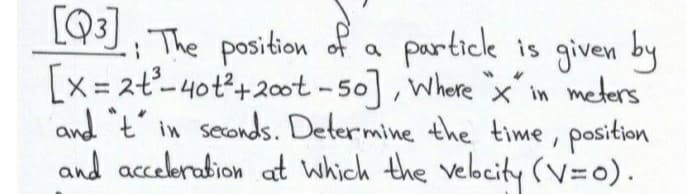 [Q3]; The position of a particle is given by
[x = 2t³-40t²+200t-50], Where "x" in meters
and "t" in seconds. Determine the time, position
and acceleration at which the velocity (V=0).